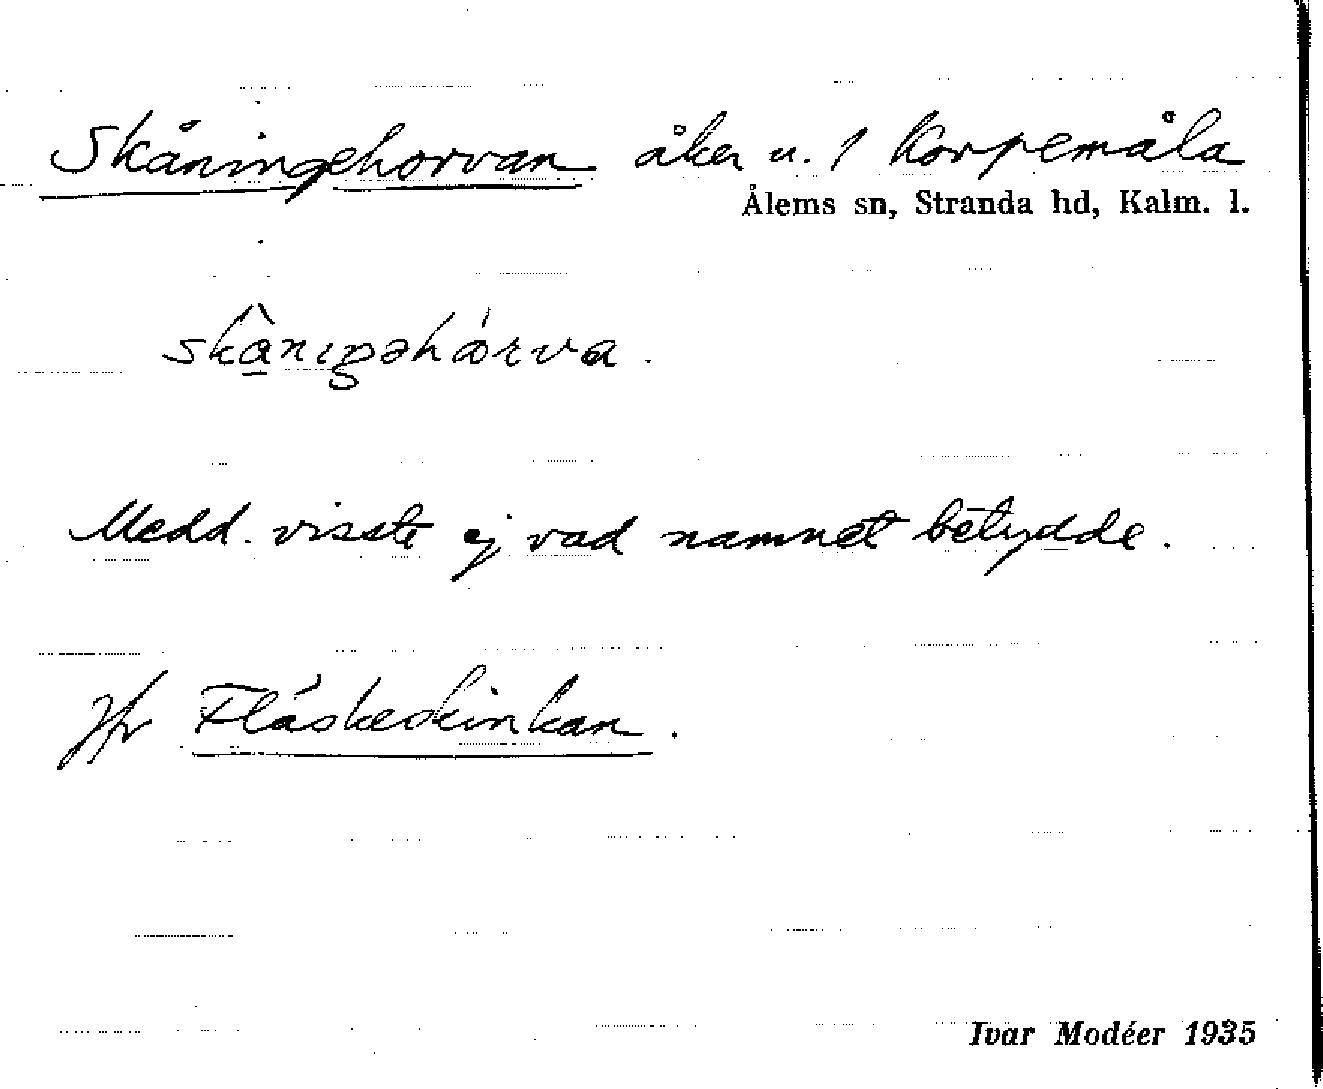 Skåningehorvan åker u. 1 Korpemåla
Ålems sn, Stranda hd, Kalm. l.
Medd. visste ej vad namnet betydde.
Jfr Fläskeskinkan.
Ivar Modéer 1935